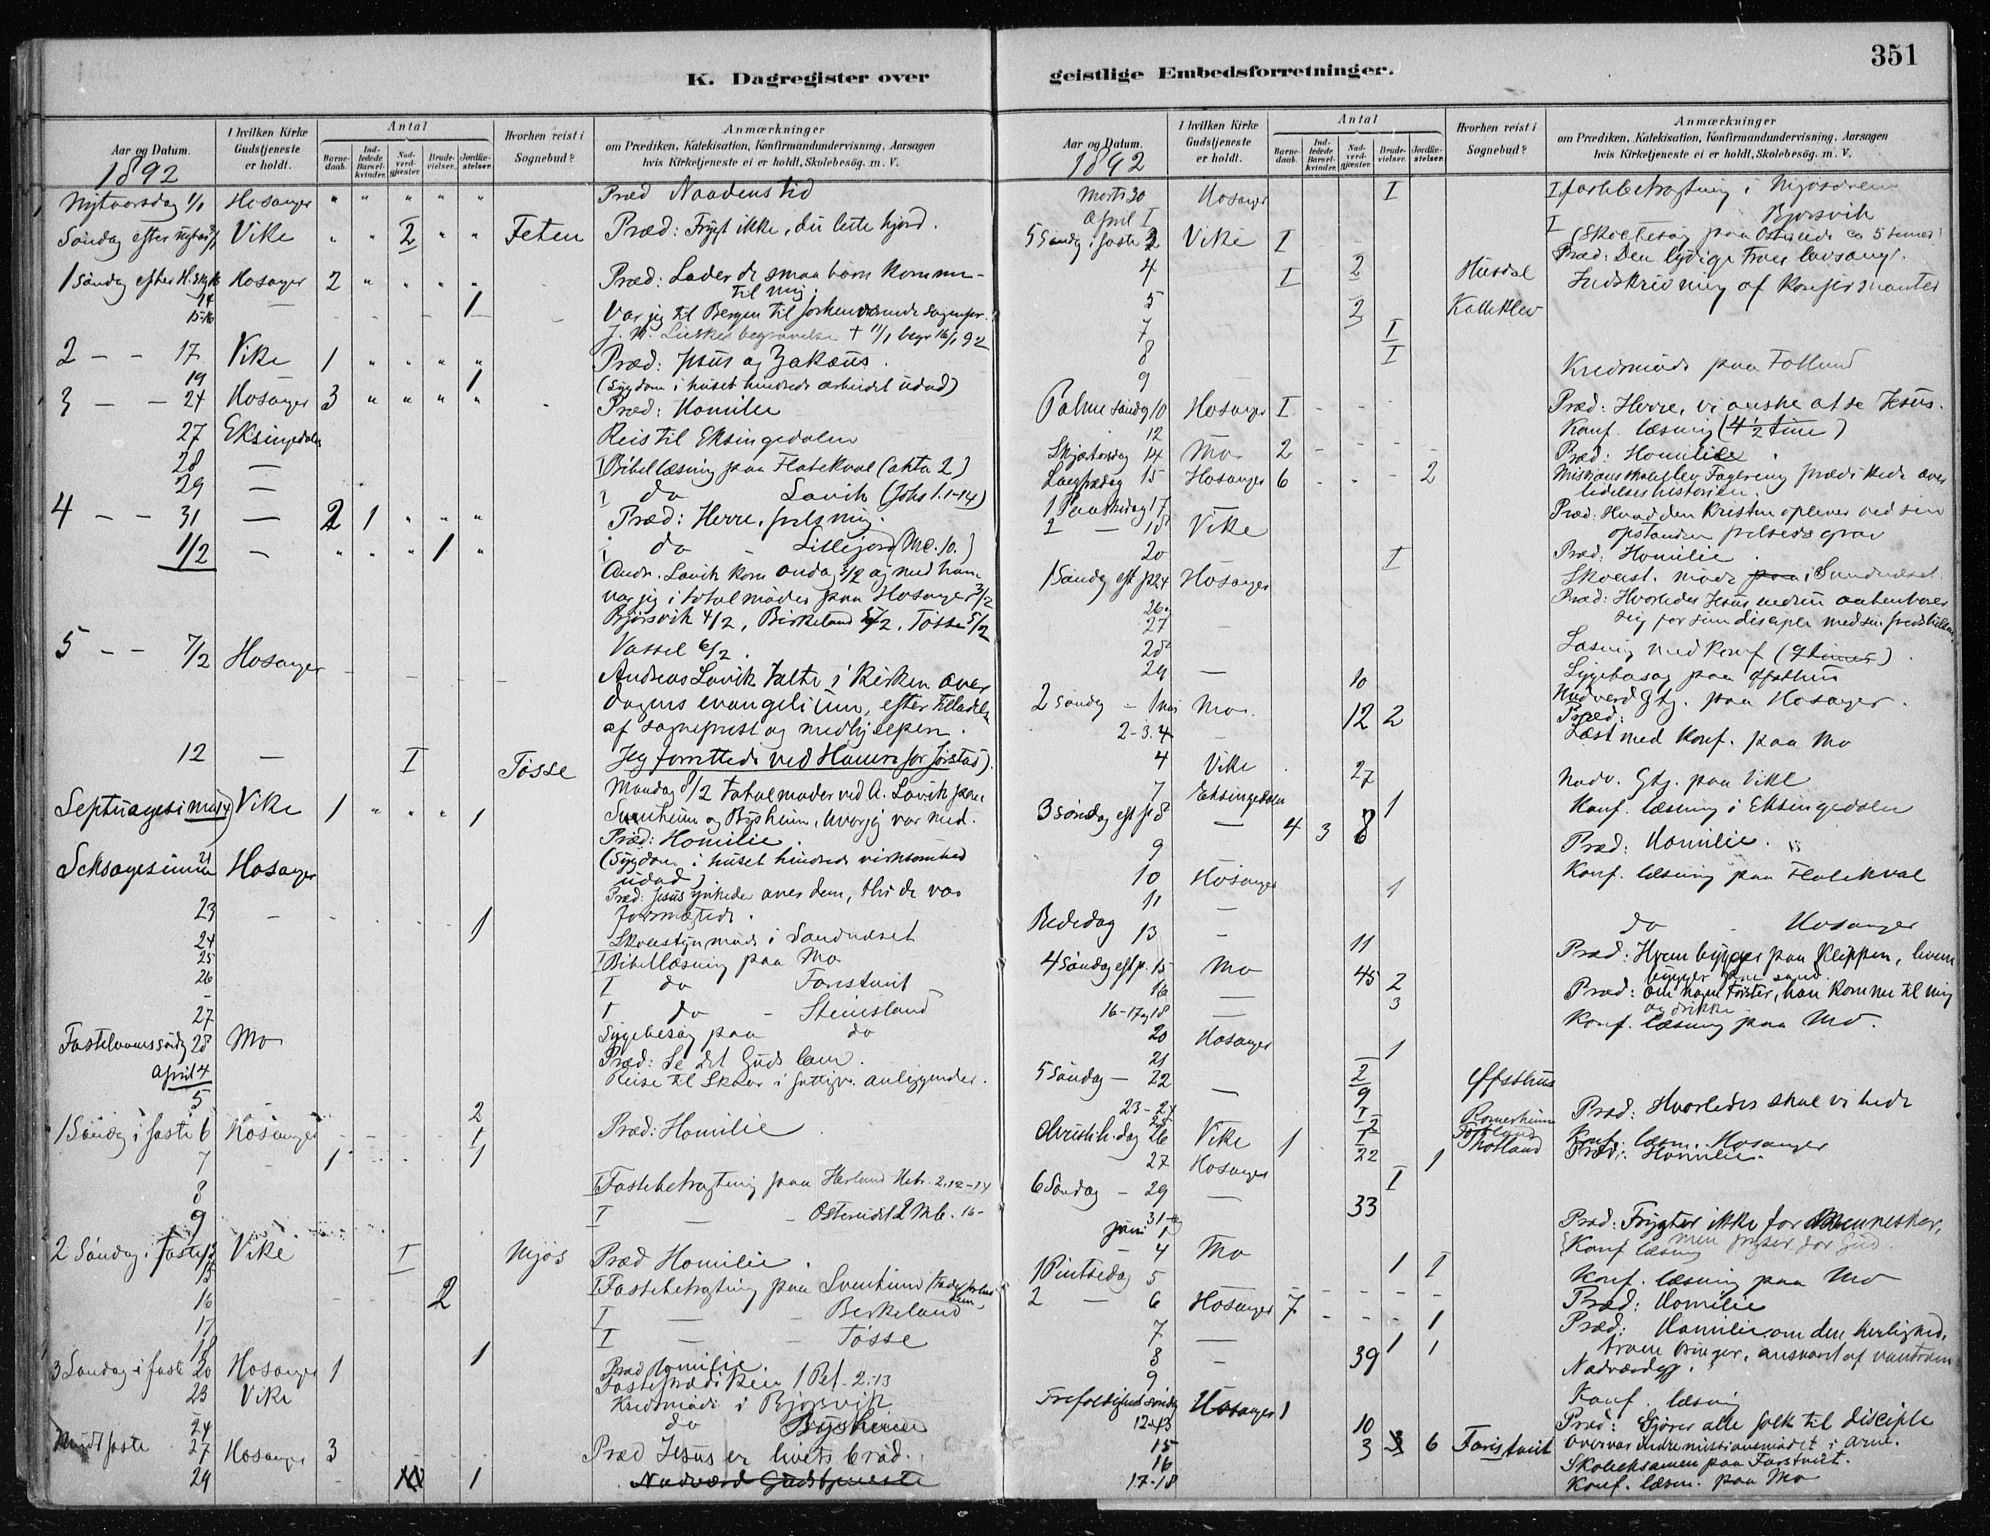 351
K. Dagregister over geistlige Embedsforretninger.
Aar og Datum.
I hvilken Kirke Gudstjeneste er holdt.
Antal
Barnedaab.
Indledede Barselkvinder.
Nadverdgjæster.
Brudevielser.
Jordfæstelser.
Hvorhen reist i Sognebud?
Anmærkninger
om Prædiken, Katekisation, Konfirmandundervisning, Aarsagen
hvis Kirketjeneste ei er holdt, Skolebesøg. m. V.
1892
Nytaarsdag 1/1 Hosanger " " " " " Præd Naadens tid
Søndag efter nytaar Vike " " 2 " " Feten Præd: Frygt ikke, du lille hjord.
1 Søndag efter H. 3 k. Hosanger 2 " " " " Præd: Lader de smaa børn komme
til mig.
14 — 1
15-16 Var jeg til Bergen til
begravelse + 11/1 begr 16/1 92
2 — — 17 Vike 1 " " " " Præd: Jesus og Zakæus.
19 1 (Sygdom i huset hindrede arbeidet udad)
3 — — 24 Hosanger 3 " " " " Præd: Homilie
27 Eksingedalen Reis til Eksingedalen
28 — I Bibellæsning paa Flatekval (akta 2)
29 — I do Lavik (Johs 1.1-14)
4 — — 31 — 2 1 " " " Præd: Herre, frels mig.
1/2 — " " " 1 " I do - Lillejord (Mc. 10.)
Andr. Lavik kom onsdag 3/2 og med ham
var jeg i totalmøder paa Hosanger 3/2
Bjørsvik 4/2, Birkeland 5/2, Tøsse 5/2
Vassel 6/2.
5 — — 7/2 Hosanger
Andreas Lavik talte i kirken over
dagens evangelium, efter tilladelse
af sogneprest og medhjelpere.
12 — I Tøsse Jeg forrettede ved Hamre for Jørstad).
Mandag 8/2 totalmøder ved A. Lavik paa
Septuagesima Vike 1 " " " 1 og Bysheim, hvor jeg var med.
Præd: Homilie.
(Sygdom i huset hindrede virksomhed
udad)
Seksagesima 21 Hosanger Præd: Jesus ynkedes over dem, thi de var
forsmægtede.
23 — 1
24 Skolestyrmøde i Sandnæset
25 I Bibellæsning paa Mo
26 I do Farestveit
I do - Steinsland
27 Sygebesøg paa do
Fastelavnssøndag 28 Mo Præd: Se det Guds lam.
April 4 Reise til i anliggender.
5 2
1 Søndag i faste 6 Hosanger 1 Præd: Homilie
7 1 1
8 I Fastebetragtning paa Herland Hebr. 2.12-14
9 I — - Ostereidet 2 Mb. 16-
2 Søndag i faste 13 Vike I Mjøs Præd Homilie.
15 I Fastebetragtning paa
16 2 I — Birkeland
17 I — - Tøsse
18 1
3 Søndag i faste 20 Hosanger 1 Præd Homilie.
23 Vike Fasteprædiken 1 Pet. 2.13
Kredsmøde i Bjørsvik
24 do Bysheim
Midtfaste 27 Hosanger 3 Præd Jesus er livets brød.
29 1 Nadverd Gudstjeneste
Aar og Datum.
I hvilken Kirke Gudstjeneste er holdt.
Antal
Barnedaab.
Indledede Barselkvinder.
Nadverdgjæster.
Brudevielser.
Jordfæstelser.
Hvorhen reist i Sognebud?
Anmærkninger
om Prædiken, Katekisation, Konfirmandundervisning, Aarsagen
hvis Kirketjeneste ei er holdt, Skolebesøg. m. V.
1892
Marts 30 Hosanger I I fastebetragtning i
April 1 I Bjørsvik
5 Søndag i faste 3 Vike I (Skolebesøg paa
Præd: Den lydige troes lovsang.
4 I 2 Husdal Indskrivning af konfirmanter
5 2 Kalleklev
7 I
8 I
9 Kredsmøde paa Fotland
Palmesøndag 10 Hosanger I Præd: Herre, vi ønske at se Jesus.
12 Konf. læsning (4 1/2 time)
Skjærtorsdag 14 Mo 2 Præd: Homilie.
Langfredag 15 Hosanger 6 2 Fagereng præd. Hele over
lidelseshistorien.
1 Paaskedag 17 Præd: Hvad den kristne oplever ved sin
opstandne frelsers grav
2 — 18 Vike Præd: Homilie
20 I Skolest. møde paa i Sandnæset
1 Søndag eft p. 24 Hosanger Præd: Hvorledes Jesus
sig for sine disciple med sin fredshilsen
26
27 Læsning med konf (9 timer).
28 Sygebesøg paa Øfsthus
29 — 10 Nadverd Gtj. paa Hosanger.
2 Søndag — 1 mai Mo 12 2 Præd:
2-3.4 Læst med konf. paa Mo
4 Vike 27 Nadv. Gtj. paa Vike
7 Eksingedalen 1 Konf. læsning i Eksingedalen
3 Søndag eft p 8 — 4 3 8 Præd: Homilie.
9 Konf. læsning paa Flatekval
10 Hosanger 1
11 — do Hosanger
Bededag 13 — 11 Præd: Hvem bygger paa Klippen, hvem
bygger paa sand.
4 Søndag eft p. 15 Mo 45 2 Præd: om nogen tørster, han komme til mig
og drikke
16 — 3
16-17 og 18 Konf. læsning paa Mo.
20 Hosanger 1
21 2 Øfsthus
5 Søndag — 22 — 9 Præd: Hvorledes skal vi bede
23-24 I Romarheim
25 2 Konf. læsn. Hosanger
Christi h. dag 26 Vike 1 I Fotland Præd: Homilie.
27 Hosanger 22 1
6 Søndag — 29 — 33 I Præd: Frygter ikke for mennesker,
men frygter for Gud.
31-
juni 1 Konf læsning
4 Mo 1 1 Konf. læsning paa Mo
1 Pintsedag 5 Præd: Homilie
2 — 6 Hosanger 7 1 Præd: Homilie om den herlighed,
troen bringer, ansvaret af vantroen
7 — 1 1
8 — 39 Nadverdgj.
9 Konf. læsning
Trefoldighedssøndag Hosanger 1 Præd: Gjører alle folk til disciple
12-13 10
15 3 3 6 Farestveit Overvar Indremissionsmødet i Arne.
16 Skoleeksamen paa Farstveit.
17-18 Konf. læsn. paa Mo